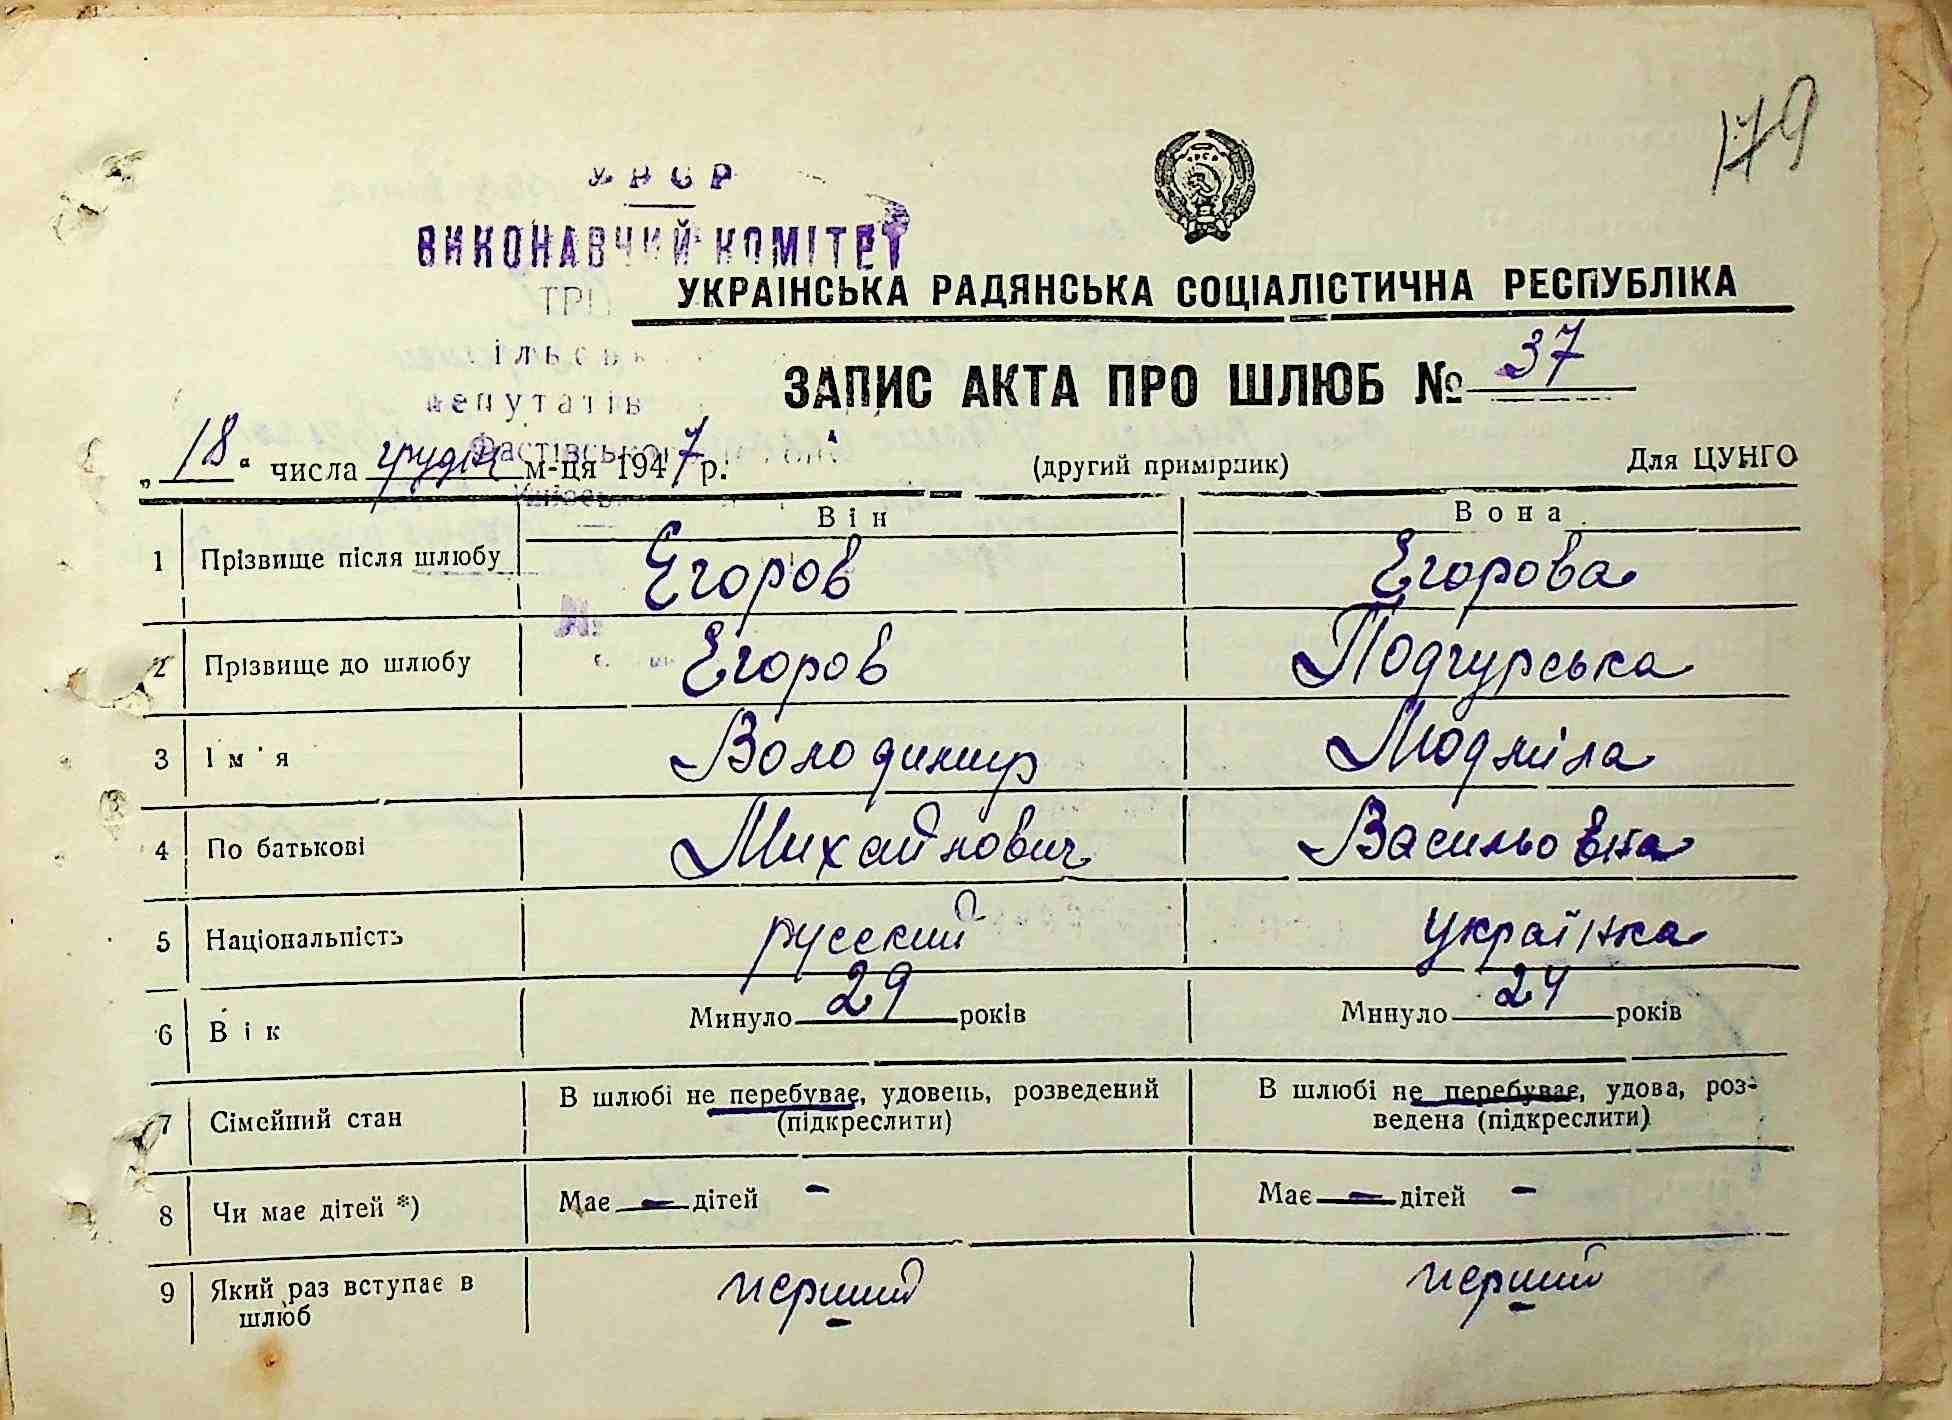 179
УРСР
ВИКОНАВЧИЙ КОМІТЕТ
УКРАІНСЬКА РАДЯНСЬКА СОЦІАЛІСТИЧНА РЕСПУБЛІКА
депутатів
ЗАПИС АКТА ПРО ШЛЮБ № 37
„18“ числа грудня м-ця 1947 р.
(другий примірник)
Для ЦУНГО
Він
Вона
1 Прізвище після шлюбу Егоров Егорова
2 Прізвище до шлюбу Егоров Подгурська
3 Ім'я Володимир Людміла
4 По батькові Михайлович Васильовна
5 Національність русский українка
6 Вік Минуло 29 років Минуло 24 років
7 Сімейний стан В шлюбі не перебуває, удовець, розведений (підкреслити) В шлюбі не перебуває, удова, роз-
ведена (підкреслити)
8 Чи має дітей *) Має - дітей - Має - дітей -
9 Який раз вступає в
шлюб перший перший